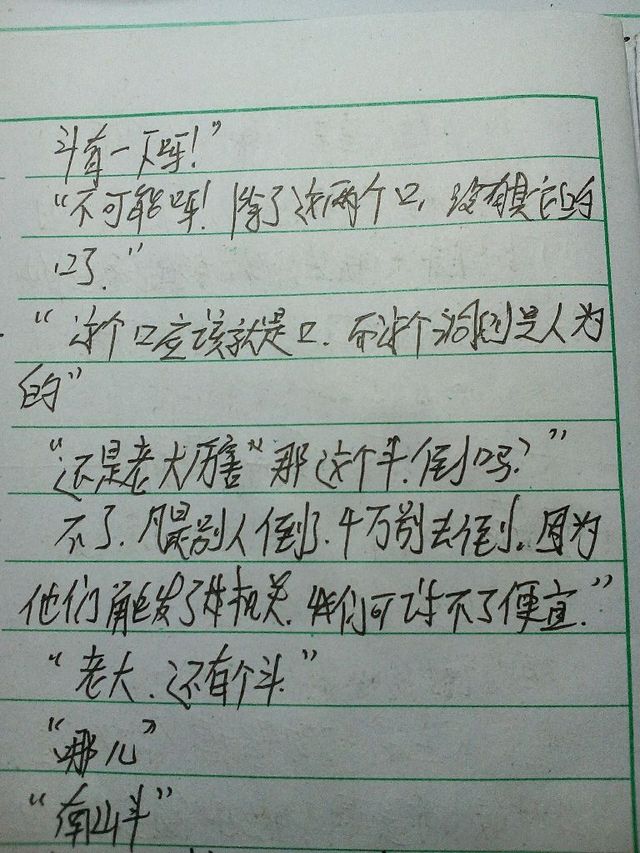 斗有一下呀！”
“不可能呀！除了这两个口，没有其它的
口了．”
“这个口应该就是口．而这个洞则是人为
的”
“还是老大厉害”那这个斗．倒吗？”
不了．凡是别人倒了．千万别去倒．因为
他们触发了机关．我们可讨不了便宜．”
“老大．还有个斗．”
“哪儿”
“南山斗”